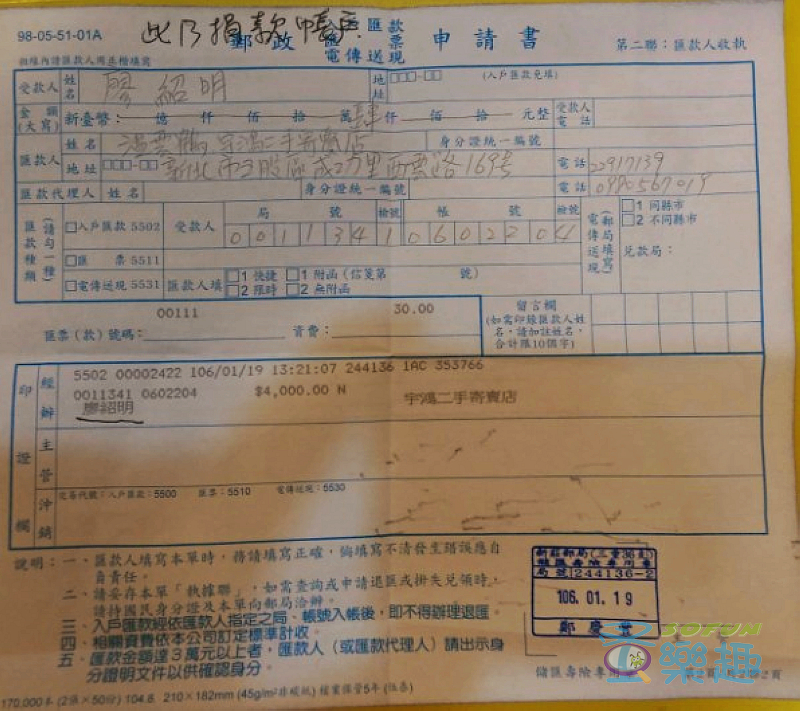 98-05-51-01A
此乃捐款帳戶
郵政 入戶匯款 匯票 電傳送現 申請書
第二聯：匯款人收執
粗線內請匯款人用正楷填寫
受款人 姓名 廖紹明 地址 □□□-□□ (入戶匯款免填)
金額(大寫) 新臺幣： 億 仟 佰 拾 萬 肆 仟 佰 拾 元整 受款人電話
匯款人 姓名 宇鴻二手寄賣店 身分證統一編號
地址 □□□-□□ 新北市三股區成功里西雲路169号 電話 22917139
匯款代理人 姓名 身分證統一編號 電話 0980567019
匯款種類 (請勾一種)
局號 檢號 帳號 檢號
□入戶匯款 5502 受款人 0 0 1 1 3 4 1 0 6 0 2 2 0 4
電傳送現 (郵局填寫) □1 同縣市 □2 不同縣市
□匯票 5511
兌款局：
□電傳送現 5531 匯款人填 □1 快捷 □2 限時 □1 附函 (信箋第 號) □2 無附函
00111 30.00
匯票(款)號碼： 資費：
留言欄
(如需印錄匯款人姓名，請加註姓名，合計限10個字)
印證欄
經辦
5502 00002422 106/01/19 13:21:07 244136 1AC 353766
0011341 0602204 $4,000.00 N 宇鴻二手寄賣店
廖紹明
主管
沖銷
交易代號：入戶匯款：5500 匯票：5510 電傳送現：5530
說明：一、匯款人填寫本單時，務請填寫正確，倘填寫不清發生錯誤應自
負責任。
二、請妥存本單「執據聯」，如需查詢或申請退匯或掛失兌領時，
請持國民身分證及本單向郵局洽辦。
三、入戶匯款經依匯款人指定之局、帳號入帳後，即不得辦理退匯
四、相關資費依本公司訂定標準計收。
五、匯款金額達3萬元以上者，匯款人（或匯款代理人）請出示身
分證明文件以供確認身分。
局號 244136-2
106.01.19
鄭慶豐
SOFUN
樂趣
儲匯壽險專用
170,000本 (2聯×50份) 104.8. 210×182mm (45g/m²非碳紙) 檔案保管5年 (伍泰)